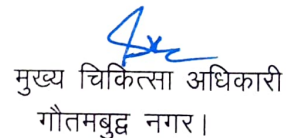 मुख्य चिकित्सा अधिकारी
गौतमबुद्व नगर।